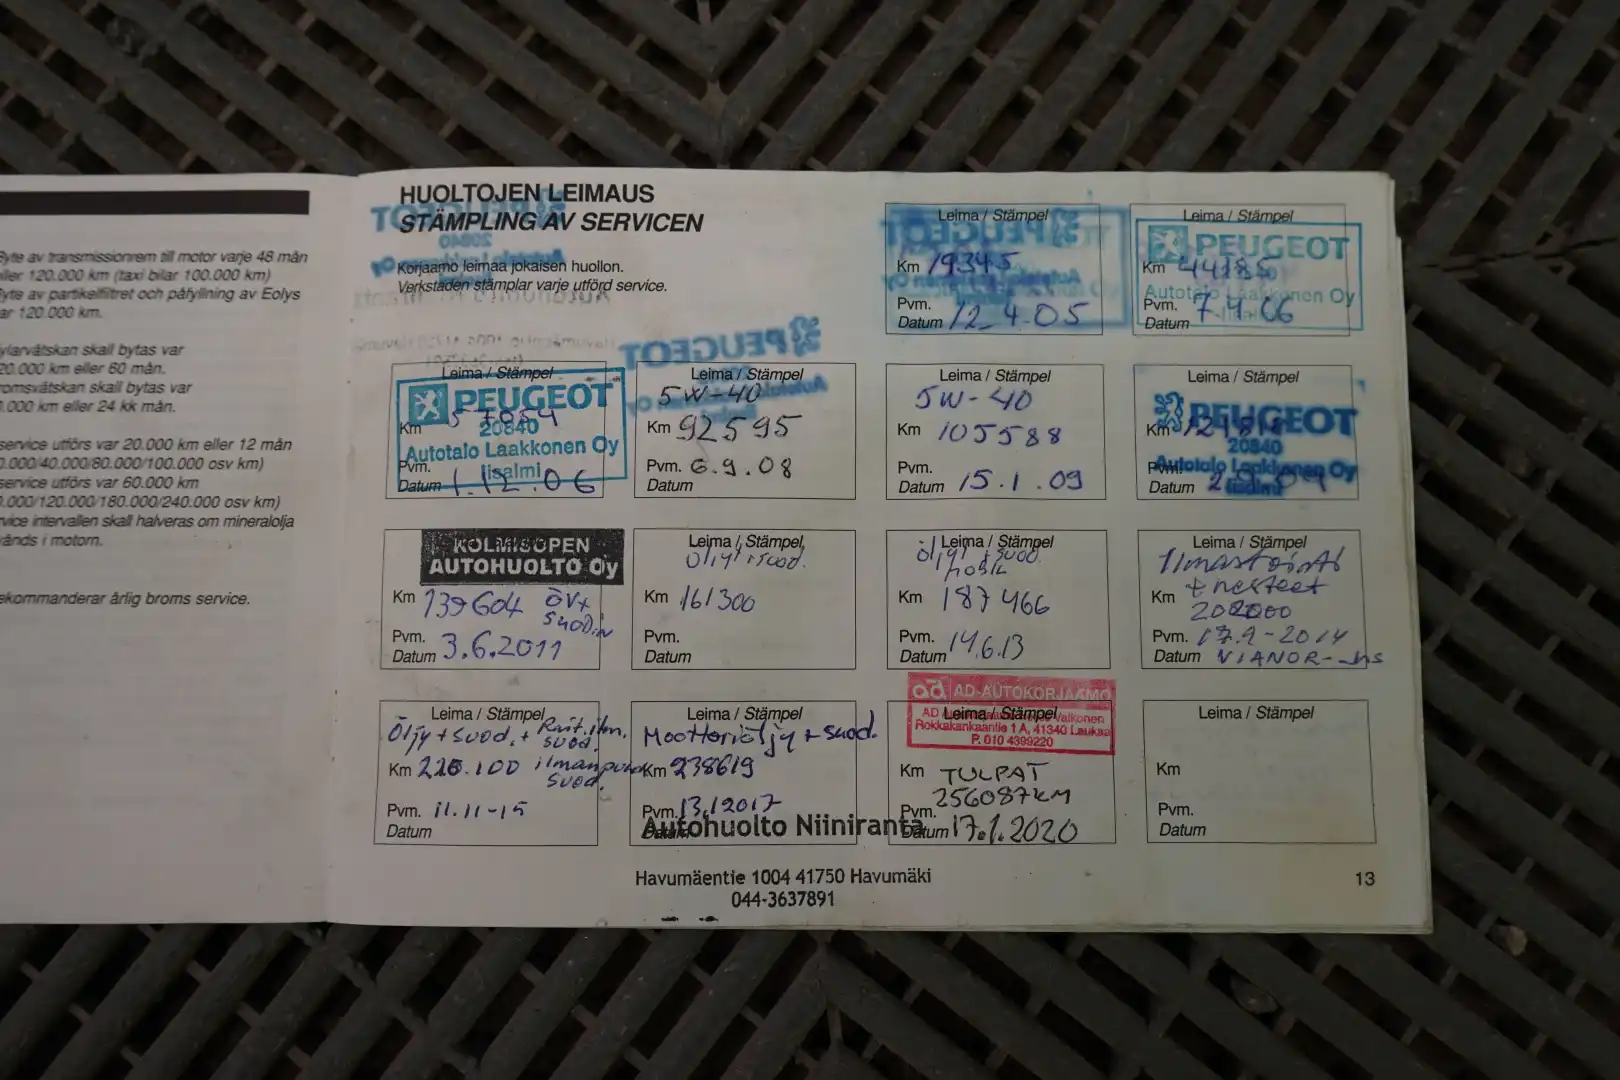 Byte av transmissionrem till motor varje 48 mån
eller 120.000 km (taxi bilar 100.000 km)
Byte av partikelfiltret och påfyllning av Eolys
var 120.000 km.
Kylarvätskan skall bytas var
120.000 km eller 60 mån.
Bromsvätskan skall bytas var
.000 km eller 24 kk mån.
service utförs var 20.000 km eller 12 mån
0.000/40.000/80.000/100.000 osv km)
service utförs var 60.000 km
0.000/120.000/180.000/240.000 osv km)
vice intervallen skall halveras om mineralolja
vänds i motorn.
ekommanderar årlig broms service.
HUOLTOJEN LEIMAUS
STÄMPLING AV SERVICEN
Korjaamo leimaa jokaisen huollon.
Verkstaden stämplar varje utförd service.
Leima / Stämpel
Km 19345
Pvm.
Datum 12.4.05
Leima / Stämpel
PEUGEOT
Km 44185
Autotalo Laakkonen Oy
Iisalmi
Pvm.
Datum
Leima / Stämpel
PEUGEOT
Km 57054
20840
Autotalo Laakkonen Oy
Iisalmi
Pvm.
Datum 1.12.06
Leima / Stämpel
5W-40
Km 92595
Pvm. 6.9.08
Datum
Leima / Stämpel
5W-40
Km 105588
Pvm.
Datum 15.1.09
Leima / Stämpel
PEUGEOT
Km
20840
Autotalo Laakkonen Oy
Iisalmi
Pvm.
Datum
KOLMISOPEN
AUTOHUOLTO Oy
Km 139604 öv+
suodin
Pvm.
Datum 3.6.2011
Leima / Stämpel
öljyt+suod.
Km 161300
Pvm.
Datum
Leima / Stämpel
öljyt+suod.
Km 187466
Pvm.
Datum 14.6.13
Leima / Stämpel
Ilmastointi
+ nesteet
Km 202000
Pvm. 17.9-2014
Datum VIANOR-
Leima / Stämpel
Öljy+suod. + Rait.ilm.
suod.
Km 220.100 ilmanpuhd
suod.
Pvm. 11.11-15
Datum
Leima / Stämpel
Moottoriöljy + suod.
Km 238619
Pvm. 13.1 2017
Datum
Autohuolto Niiniranta
Havumäentie 1004 41750 Havumäki
044-3637891
ad AD-AUTOKORJAAMO
Leima / Stämpel
AD Valkonen
Rokkakankaantie 1 A, 41340 Laukaa
P. 010 4399220
Km TULPAT
256087KM
Pvm.
Datum 17.1.2020
Leima / Stämpel
Km
Pvm.
Datum
13